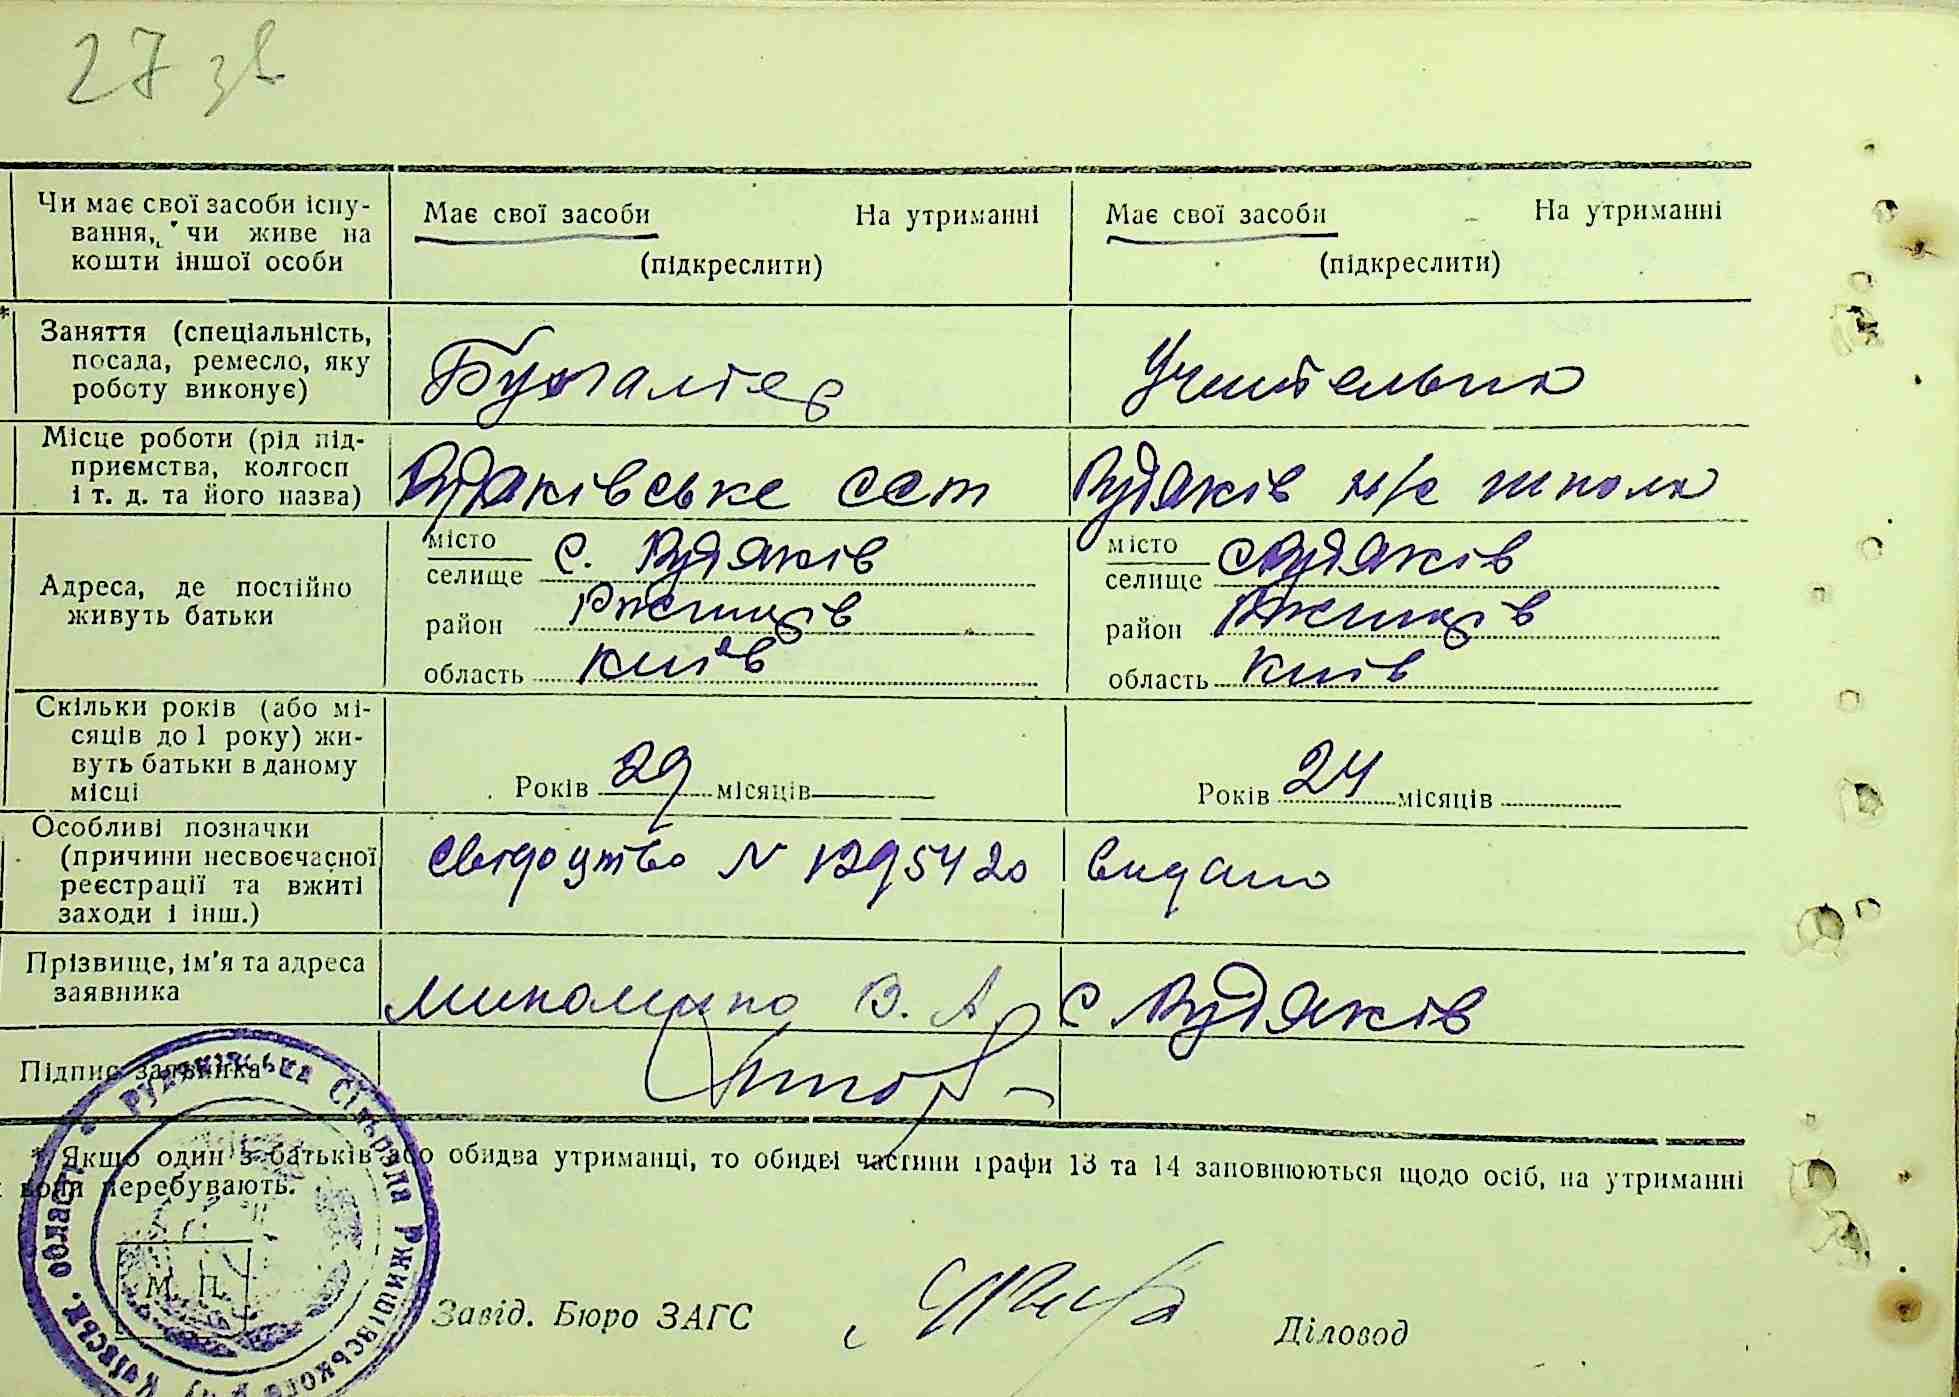 27 зв
Чи має свої засоби існу-
вання, чи живе на
кошти іншої особи
Має свої засоби На утриманні
(підкреслити)
Має свої засоби На утриманні
(підкреслити)
* Заняття (спеціальність,
посада, ремесло, яку
роботу виконує)
Бухгалтер
Учителька
Місце роботи (рід під-
приємства, колгосп
і т. д. та його назва)
Рудяківське ССТ
Рудяків н/с школа
Адреса, де постійно
живуть батьки
місто
селище с. Рудяків
район Ржищів
область Київ
місто
селище с Рудяків
район Ржищів
область Київ
Скільки років (або мі-
сяців до 1 року) жи-
вуть батьки в даному
місці
Років 29 місяців
Років 24 місяців
Особливі позначки
(причини несвоєчасної
реєстрації та вжиті
заходи і інш.)
Свідоцтво N 1295420 видано
Прізвище, ім'я та адреса
заявника
В. А. с Рудяків
Підпис заявника
* Якщо один з батьків або обидва утриманці, то обидві частини графи 13 та 14 заповнюються щодо осіб, на утриманні
вони перебувають.
Рудяківська Сільрада Ржищівського р-ну Київськ. області
М. П.
Завід. Бюро ЗАГС Діловод